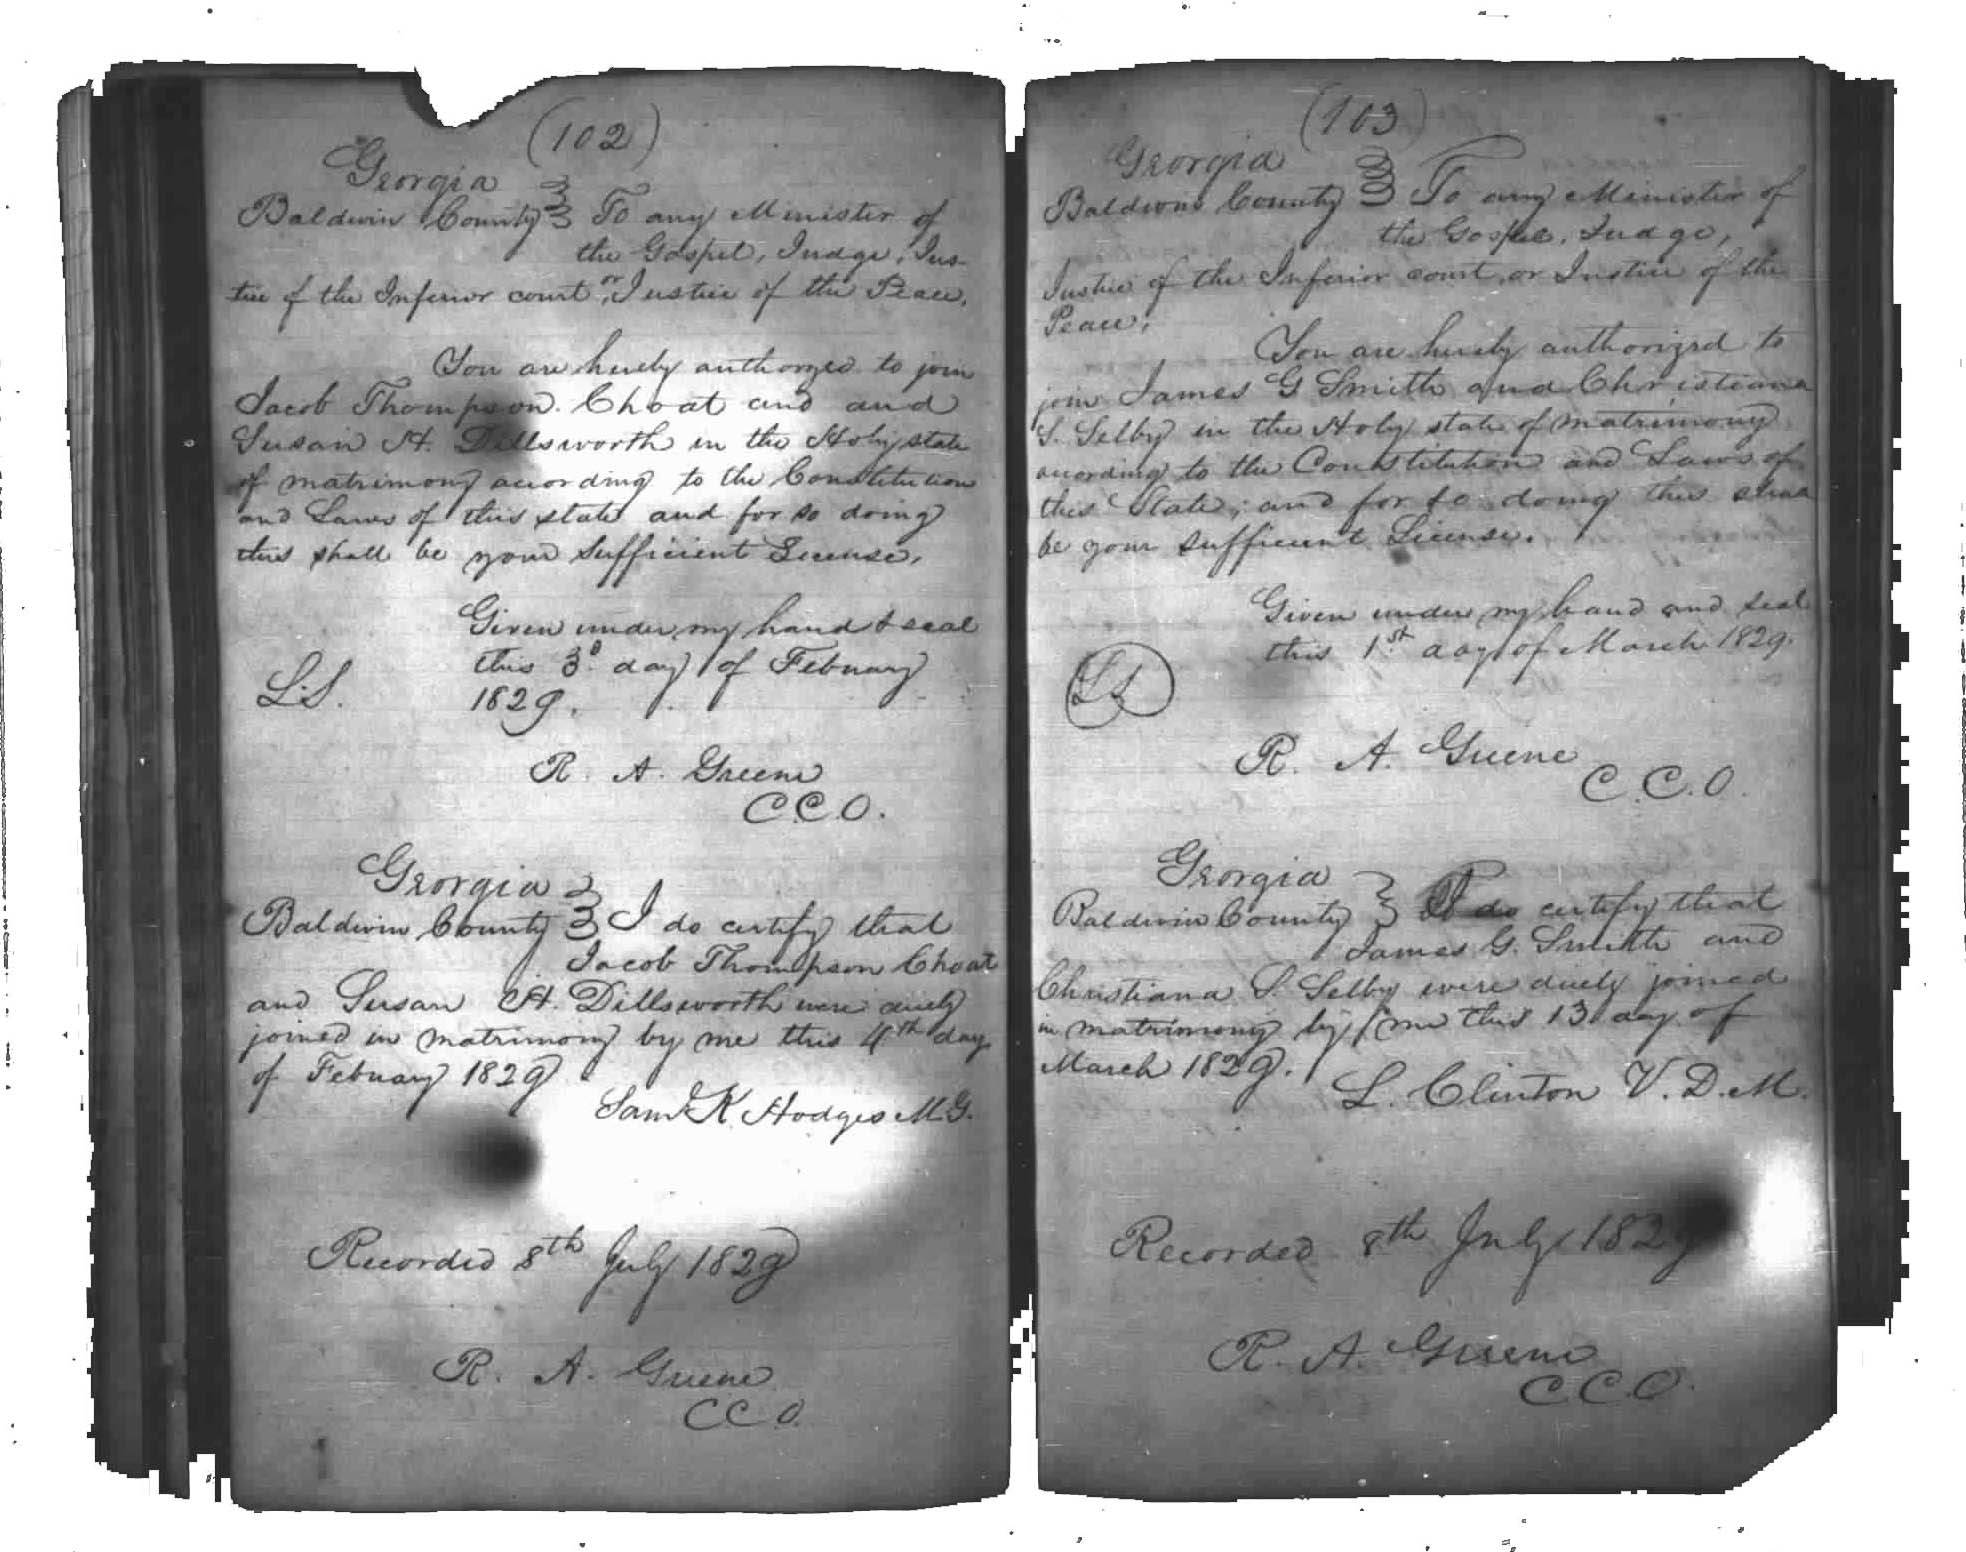 (102)
Georgia
Baldwin County To any Minister of
the Gospel, Judge, Jus-
tice of the Inferior court, or Justice of the Peace.
You are hereby authorged to join
Jacob Thompson Choat and and
Susan H. Dillsworth in the Holy state
of matrimony according to the Constitution
and Laws of this state and for so doing
this shall be your sufficient License.
Given under my hand & seal
this 3d. day of Febuary
L.S.
1829.
R. A. Greene
C.C.O.
Georgia
Baldwin County I do certify that
Jacob Thompson Choat
and Susan H. Dillsworth were duely
joined in matrimony by me this 4th day
of Febuary 1829
Saml K Hodges M G.
Recorded 8th July 1829
R. A. Greene
C C O.
(103)
Georgia
Baldwin County To any Minister of
the Gospel, Judge,
Justice of the Inferior court, or Justice of the
Peace.
You are hereby authorized to
join James G Smith and Christiana
S. Selby in the Holy state of matrimony
acording to the Constitution and Laws of
this State; and for so doing this shall
be your sufficient License.
Given under my hand and seal
this 1st day of March 1829.
LS
R. A. Greene
C.C.O.
Georgia
Baldwin County I do certify that
James G. Smith and
Christiana S. Selby were duely joined
in matrimony by me this 13 day of
March 1829.
L. Clinton V. D. M.
Recorded 8th July 1829
R. A. Greene
C.C.O.